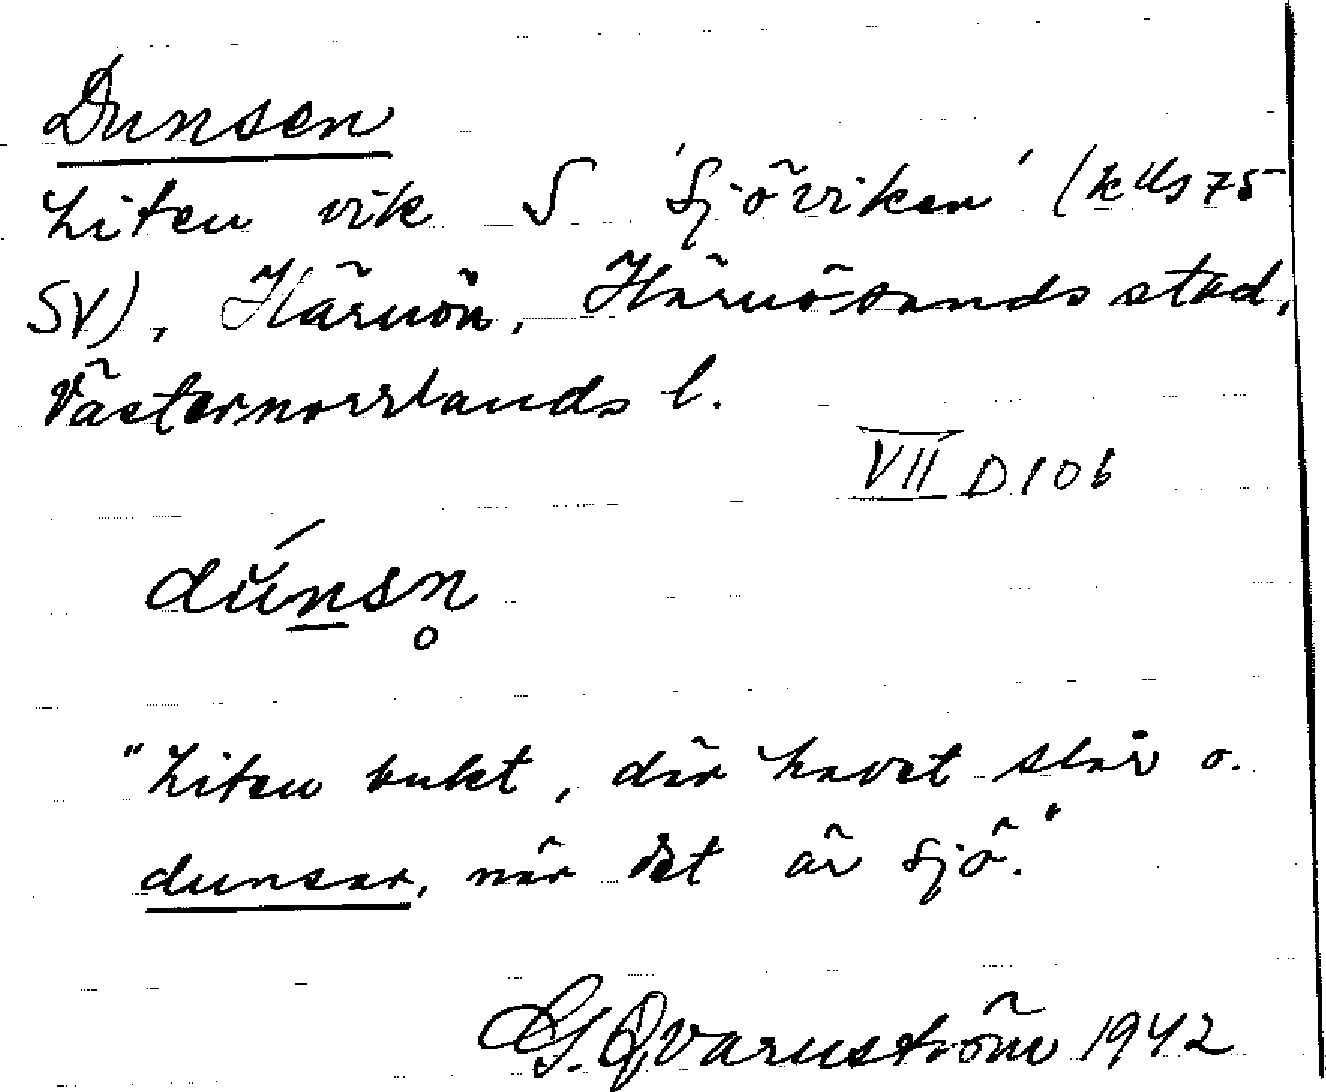 Dunsen
Liten vik S 'Sjöviken' (kbls 75
SV), Härnön, Härnösands stad,
Västernorrlands l.
VII D 10 b
dúnsn̥
"Liten bukt, där havet slår o.
dunsar, när det är sjö."
G. Qvarnström 1942